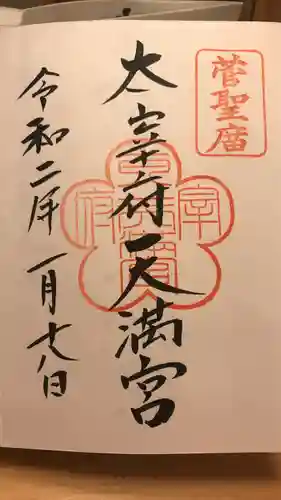 菅聖庿
太宰府天満宮
令和二年一月七日